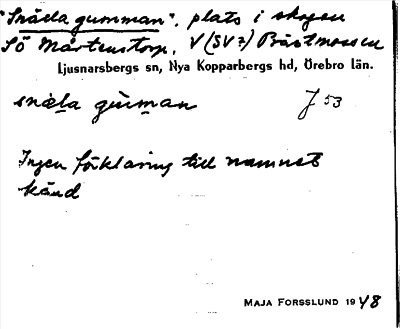 "Snälla gumman", plats i skogen
SÖ Mårtenstorp, V (SV?) Bråtmossen
Ljusnarsbergs sn, Nya Kopparbergs hd, Örebro län.
snäla guman J 53
Ingen förklaring till namnet
känd
MAJA FORSSLUND 1948